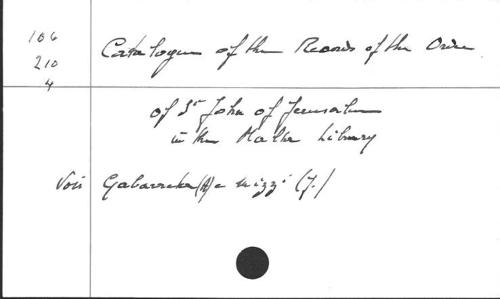 106
210
4
Catalogue of the Records of the Order
of St John of Jerusalem
in the Malta Library
Voir Gabarretta (A) e Mizzi (J.)